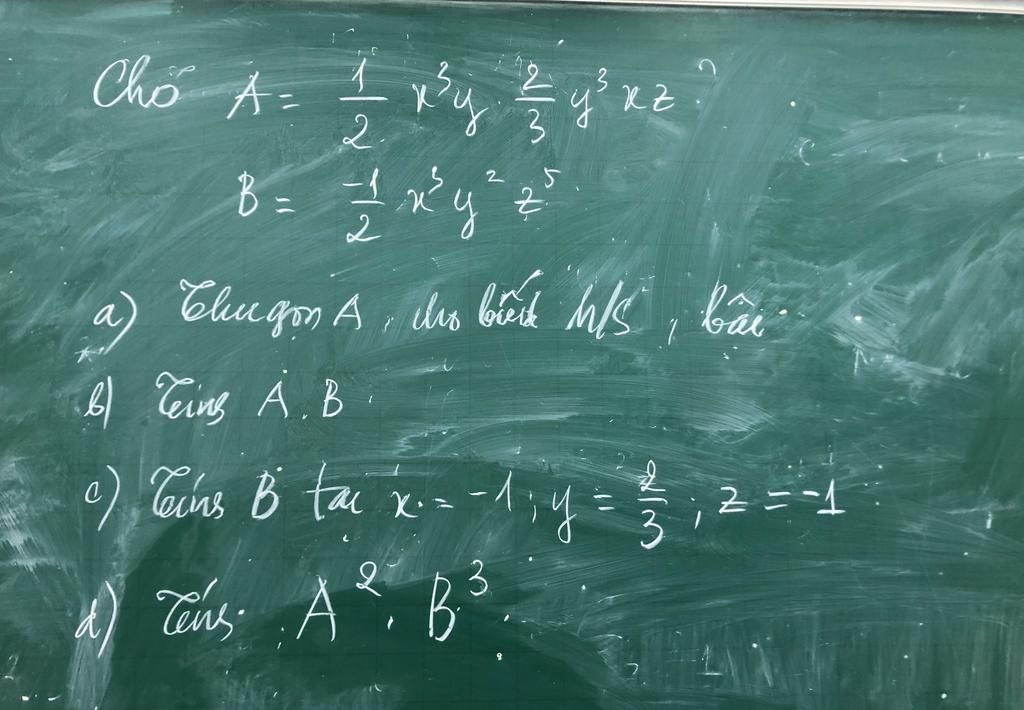 Cho A = 1/2 x³y . 2/3 y³xz
B = -1/2 x³y²z⁵
a) Thu gọn A, cho biết h/s, bậc
b) Tính A.B
c) Tính B tại x = -1; y = 2/3; z = -1
d) Tính A² . B³